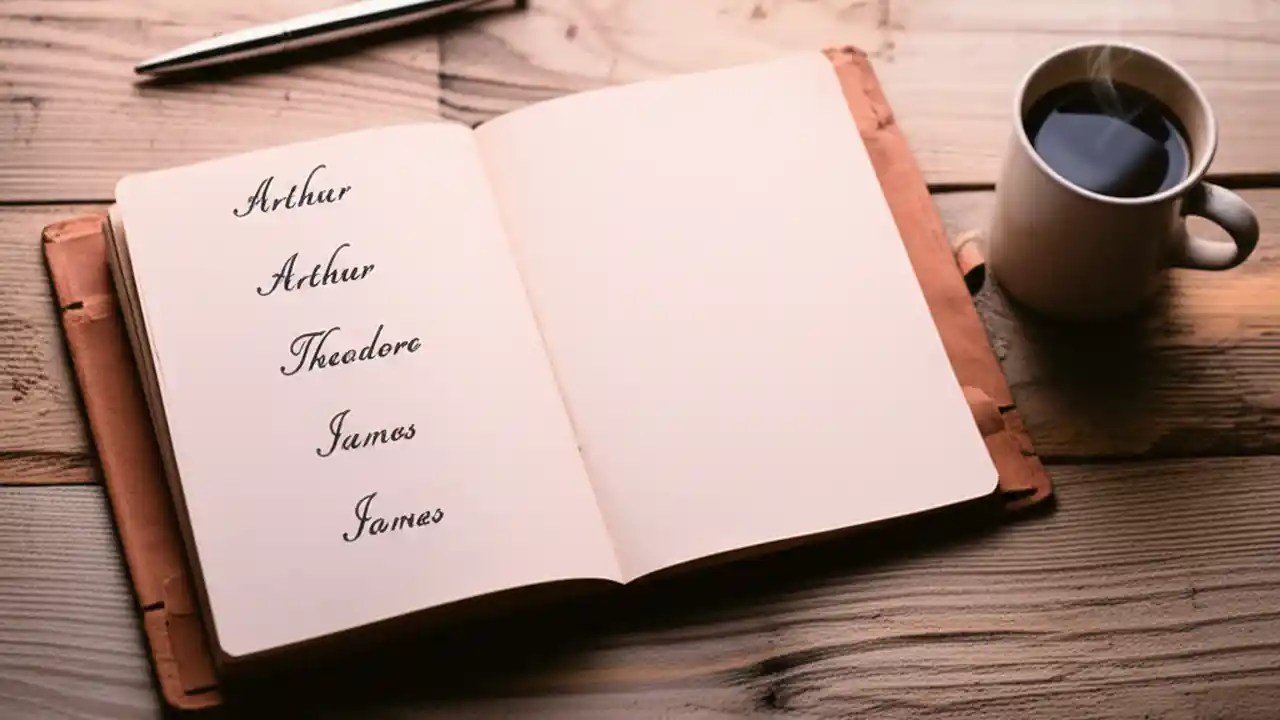 Arthur
Arthur
Theodore
James
James